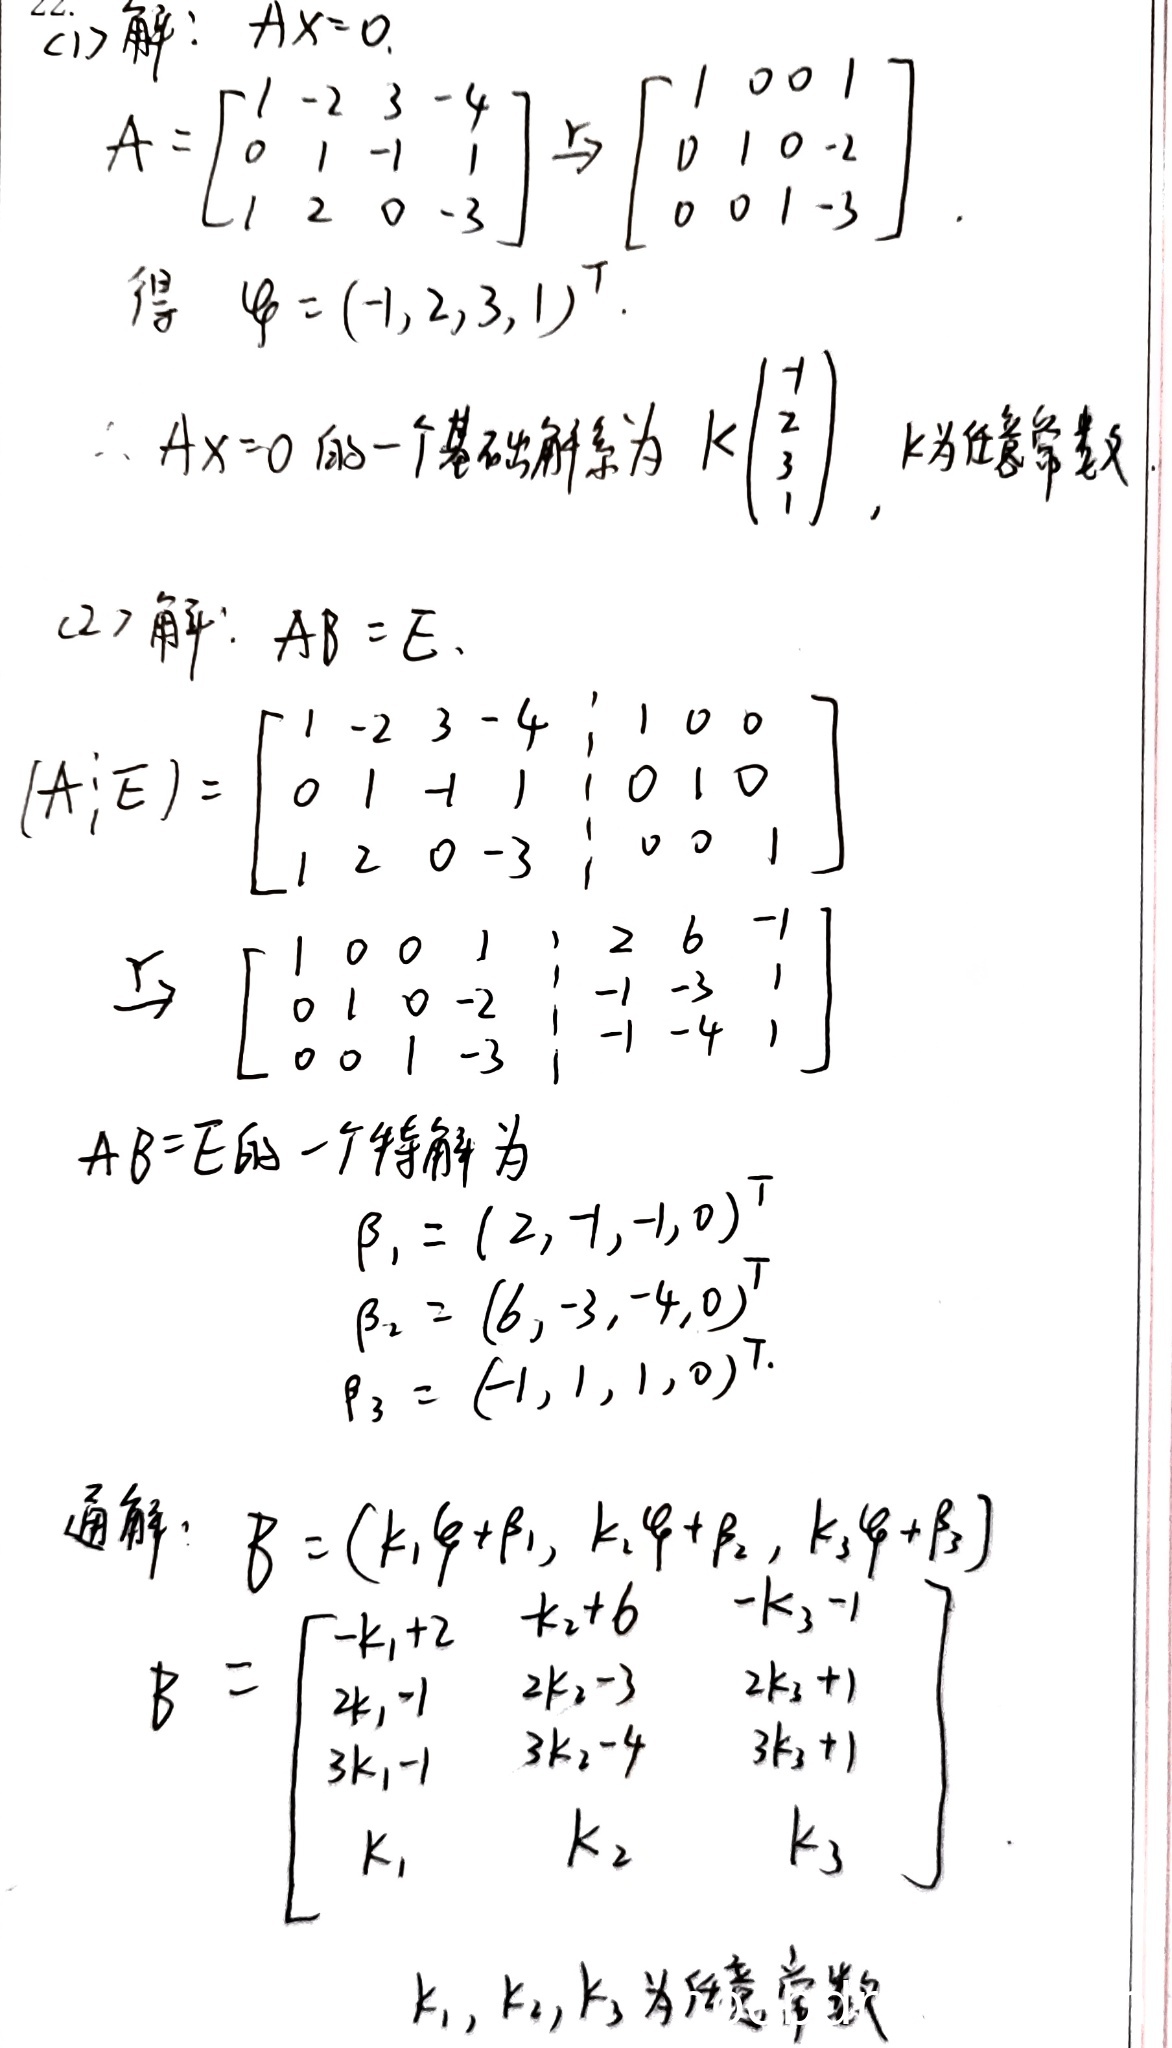 22.
(1) 解: AX=0.
A = [1 -2 3 -4; 0 1 -1 1; 1 2 0 -3] r→ [1 0 0 1; 0 1 0 -2; 0 0 1 -3].
得 φ = (-1, 2, 3, 1)ᵀ.
∴ AX=0的一个基础解系为 K(-1 2 3 1), K为任意常数.
(2) 解: AB = E.
(A┆E) = [1 -2 3 -4 ┆ 1 0 0; 0 1 -1 1 ┆ 0 1 0; 1 2 0 -3 ┆ 0 0 1]
r→ [1 0 0 1 ┆ 2 6 -1; 0 1 0 -2 ┆ -1 -3 1; 0 0 1 -3 ┆ -1 -4 1]
AB=E的一个特解为
β₁ = (2, -1, -1, 0)ᵀ
β₂ = (6, -3, -4, 0)ᵀ
β₃ = (-1, 1, 1, 0)ᵀ.
通解: B = (k₁φ+β₁, k₂φ+β₂, k₃φ+β₃)
B = [-k₁+2 -k₂+6 -k₃-1; 2k₁-1 2k₂-3 2k₃+1; 3k₁-1 3k₂-4 3k₃+1; k₁ k₂ k₃].
k₁, k₂, k₃为任意常数